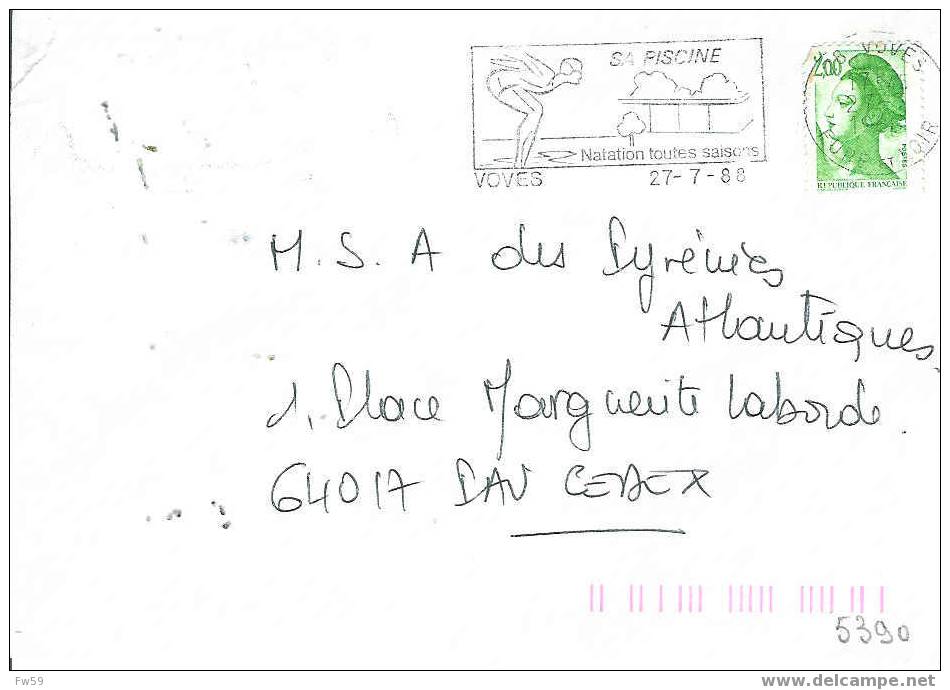 SA PISCINE
Natation toutes saisons
VOVES
27-7-88
28 VOVES
EURE ET LOIR
2,00
POSTES
REPUBLIQUE FRANÇAISE
M.S.A des Pyrénées
Atlantiques
1, Place Marguerite Laborde.
64017 PAU CEDEX
5390
Fw59
www.delcampe.net